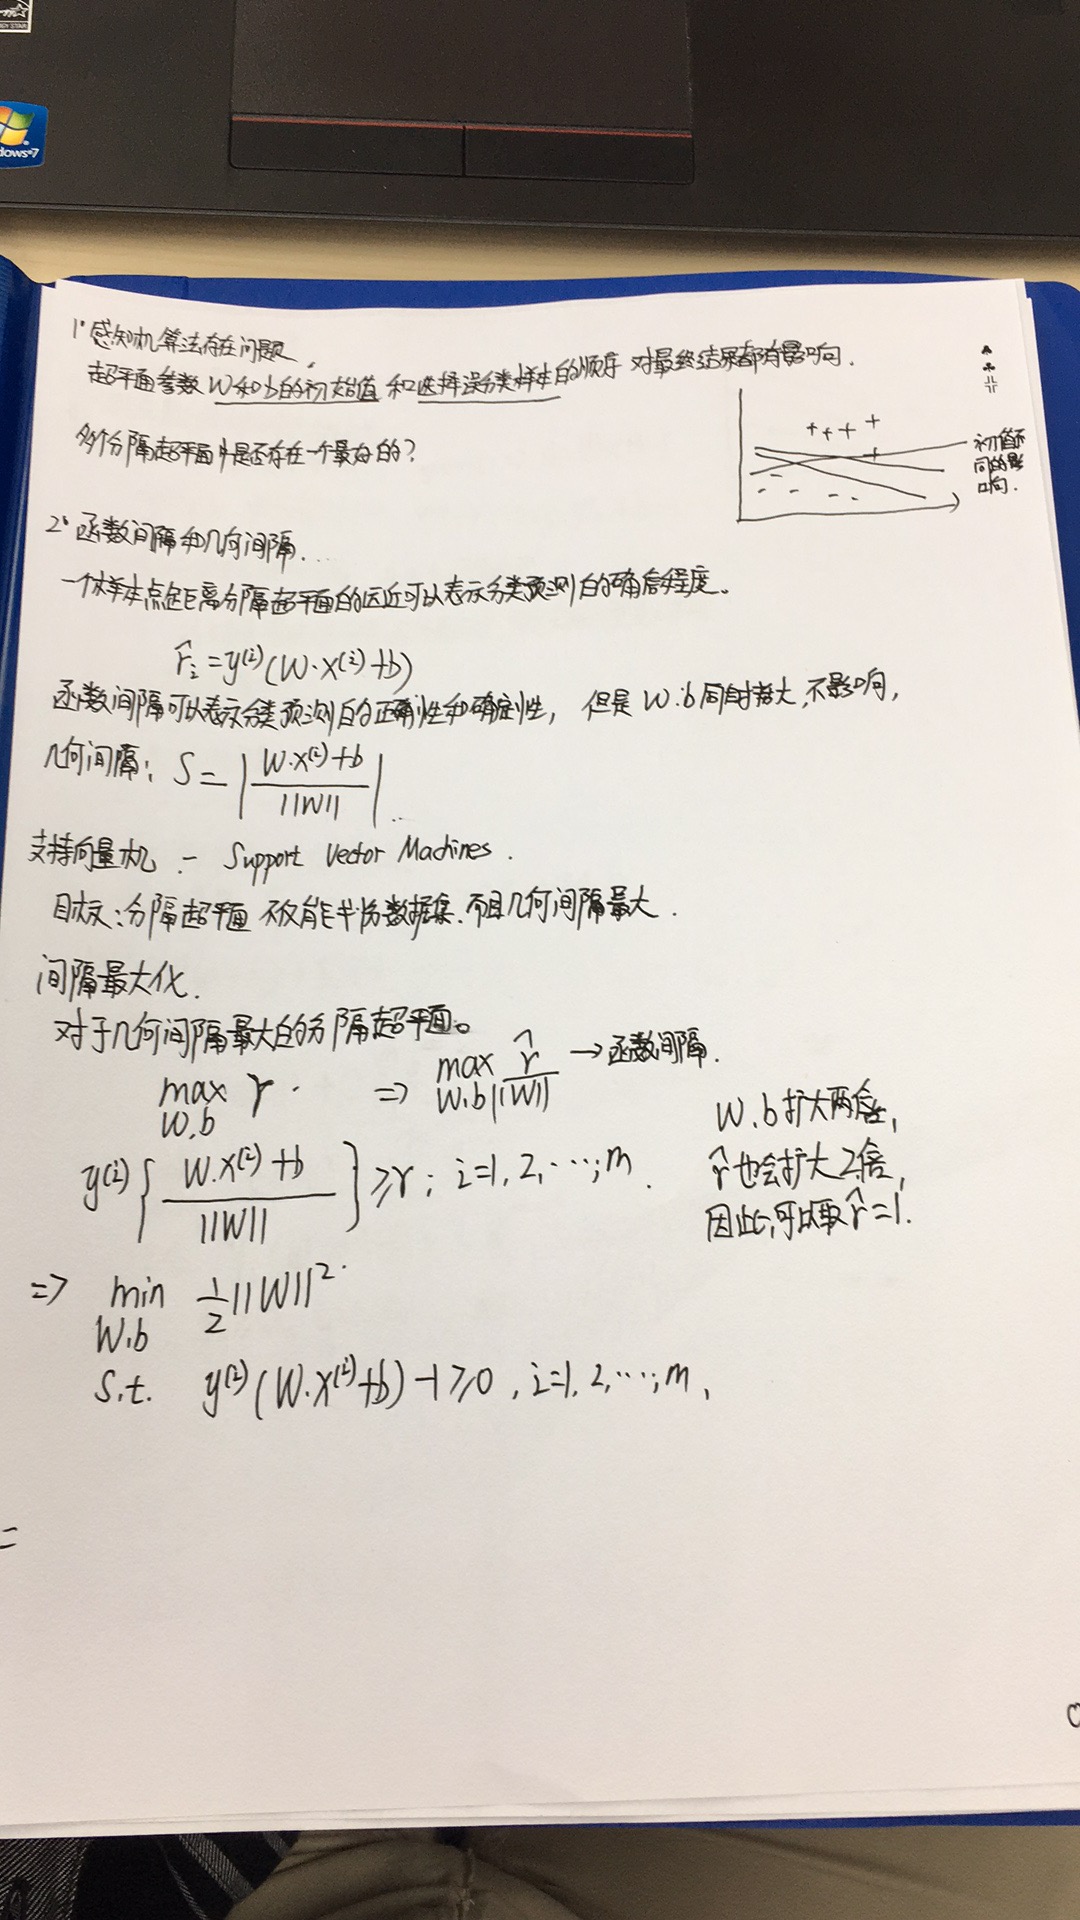 1° 感知机算法存在问题
超平面参数 W和b的初始值 和选择误分类样本的顺序 对最终结果都有影响.
多个分隔超平面中是否存在一个最好的?
初值不
同的影
响.
2° 函数间隔和几何间隔.
一个样本点距离分隔超平面的远近可以表示分类预测的确信程度。
r̂ᵢ = y⁽ⁱ⁾(W·X⁽ⁱ⁾+b)
函数间隔可以表示分类预测的正确性和确定性, 但是 W.b 同时增大,不影响,
几何间隔: S = | (W·X⁽ⁱ⁾+b) / ||W|| |
支持向量机 - Support Vector Machines.
目标:分隔超平面 不仅能半份数据集.而且几何间隔最大.
间隔最大化.
对于几何间隔最大的分隔超平面。
max_{W,b} r. => max_{W,b} r̂/||W|| → 函数间隔.
y⁽ⁱ⁾ { (W·X⁽ⁱ⁾+b) / ||W|| } ≥ r; i=1,2,…,m.
W.b 扩大两倍,
r̂ 也会扩大2倍,
因此,可以取 r̂=1.
=> min_{W,b} ½||W||²
S.t. y⁽ⁱ⁾(W·X⁽ⁱ⁾+b)-1≥0, i=1,2,…,m,